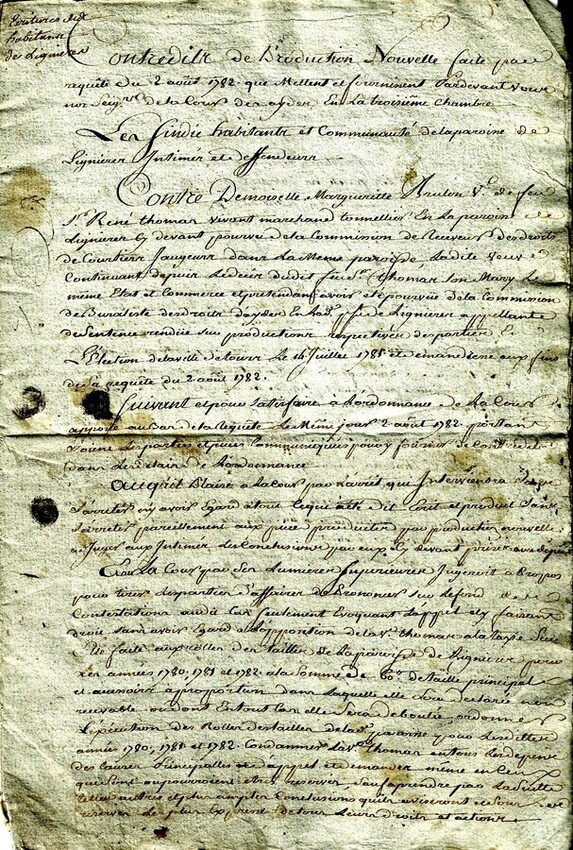 Ecritures des
habitants
de Lignieres
Contredits de Production Nouvelle faite par
requête du 2 août 1782 que Mettent et fournissent Pardevant Vous
nos Seigrs de la Cour des aydes En La troisieme chambre
Les Sindic habitants et Communauté de la paroisse de
Lignieres Intimés et deffendeurs
Contre Demoiselle Margueritte Bruton Ve de feu
Sr René thomas vivant marchand tonnellier En La paroisse de
Lignieres Cy devant pourvu de la Commission de Receveur des droits
de Courtiers Jaugeurs dans La Meme paroisse La dite Veuve
Continuant depuis Le deces dudit feu Sr thomas son Mary Le
même Etat et Commerce et pretendant avoir eté pourvue de la Commission
de Buraliste des droits daydes En Lad. psse de Lignieres appellante
de Sentence rendue sur productions respectives des parties En
L'Election de la ville de tours Le 14 Juillet 1781 et demanderesse aux fins
de sa requête du 2 août 1782.
Suivant et pour Satisfaire a Lordonnance de La Cour
apposé au bas de la requête Le Même jour 2 août 1782 portant
Soit Les parties et pieces Communiquées pour y fournir de Contredits
dans Les delais de Lordonnance
a ce qu'il Plaise a La Cour par L'arrêt qui Interviendra Sans
S'arrêter n'y avoir Egard a tout Ce qui a été dit Ecrit et produit Sans
S'arrêter pareillement aux pieces produites par production nouvelle
adjuger aux Intimés Les Conclusions par eux Cy devant prises avec depens
Et ou La Cour par Ses Lumieres Superieures Jugeroit a Propos
pour tirer Les parties d'affaires de Prononcer sur Le fond des
Contestations audit Cas seulement Evoquant L'appel et y faisant
droit sans avoir Egard a L'opposition de la Ve thomas a la taxe
faite aux rolles des tailles de La paroisse de Lignieres pour
Les années 1780, 1781 et 1782 a la Somme de 60# de taille principale
et accessoires a proportion dans Laquelle elle Sera declarée non
recevable ou dont En tout Cas elle Sera deboutée, ordonner
L'Execution des Rolles des tailles de lad. paroisse pour Lesdittes
années 1780, 1781 et 1782. Condamner La Ve thomas en tous Les depens
des Causes Principalles d'appel et demandes même en Ceux
qui Sont ou pourroient etre reservés, Sauf a prendre par La Suitte
telles autres et plus amples Conclusions qu'ils aviseront et Sous
reserves Les plus Expresses de tous Leurs droits et actions